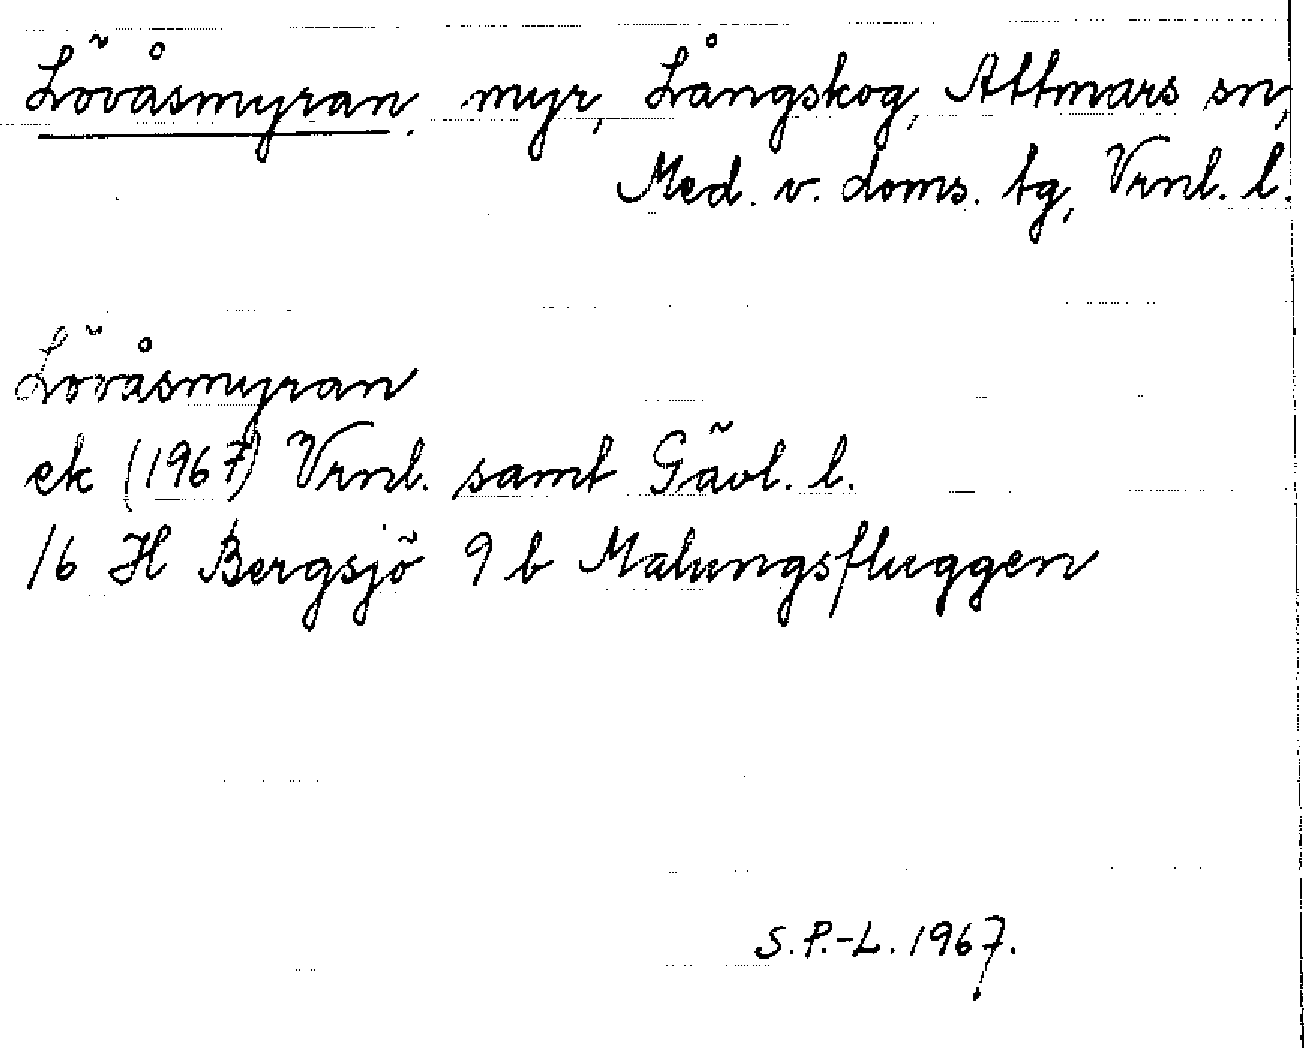 Lövåsmyran, myr, Långskog, Attmars sn,
Med. v. doms. tg, Vrnl. l.
Lövåsmyran
ek (1967) Vrnl. samt Gävl. l.
16 H Bergsjö 9 b Malungsfluggen
S.P.-L. 1967.